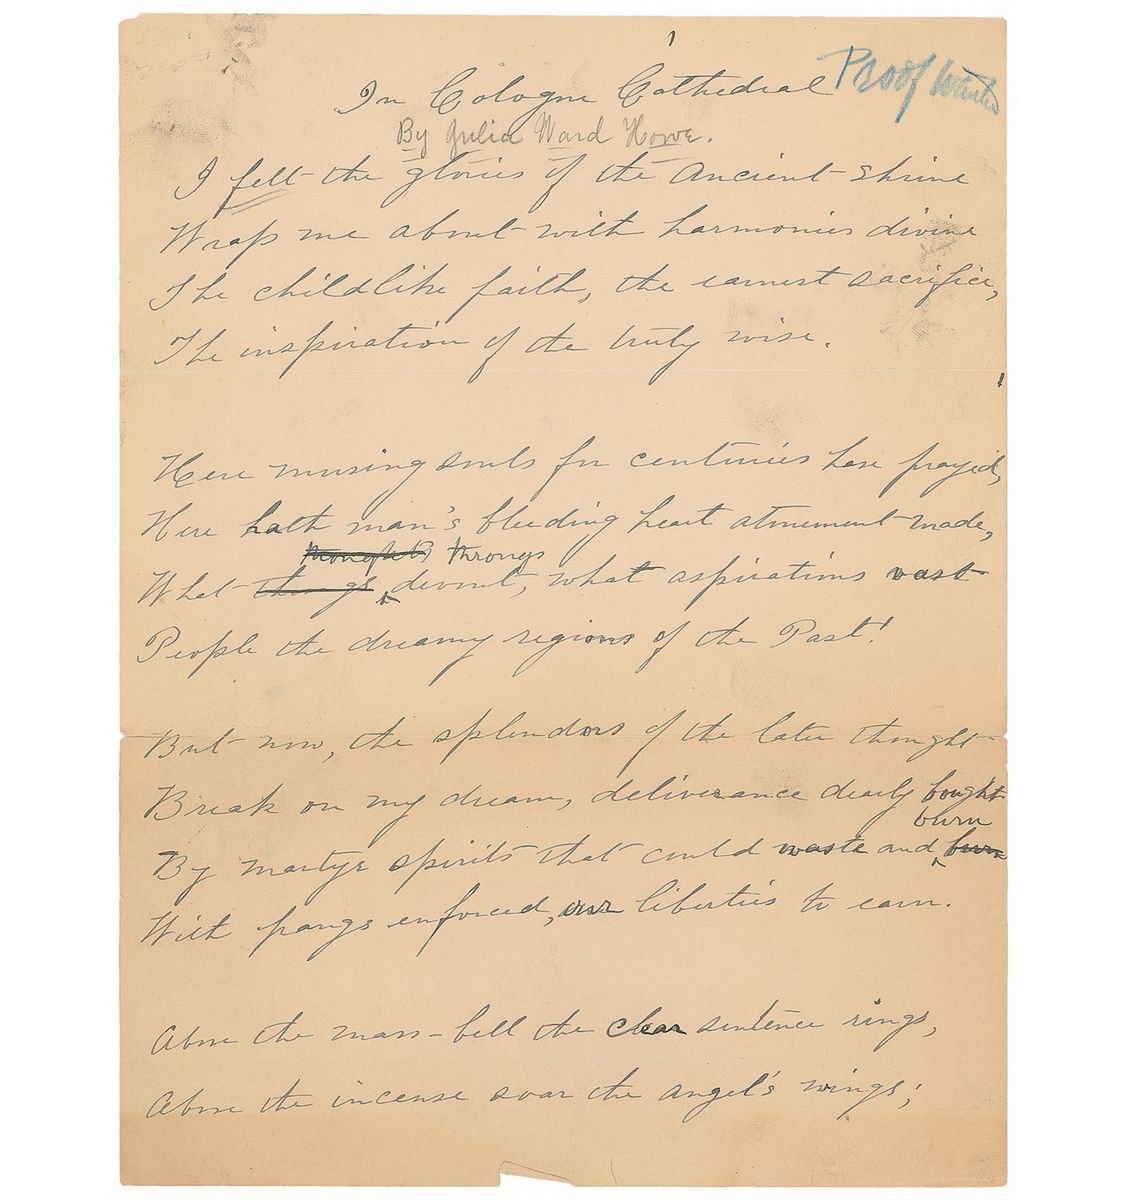 In Cologne Cathedral Proof
By Julia Ward Howe.
I felt the glories of the Ancient Shrine
Wrap me about with harmonies divine
The childlike faith, the earnest sacrifice,
The inspiration of the truly wise.
Here musing souls for centuries have prayed,
Here hath man's bleeding heart atonement made,
thoughts throngs
What things devout, what aspirations vast
People the dreamy regions of the Past!
But now, the splendors of the later thought
Break on my dream, deliverance dearly bought
burn
By martyr spirits that could waste and burn
With pangs enforced, our liberties to earn.
Above the mass-bell the clear sentence rings,
Above the incense soar the angel's wings;